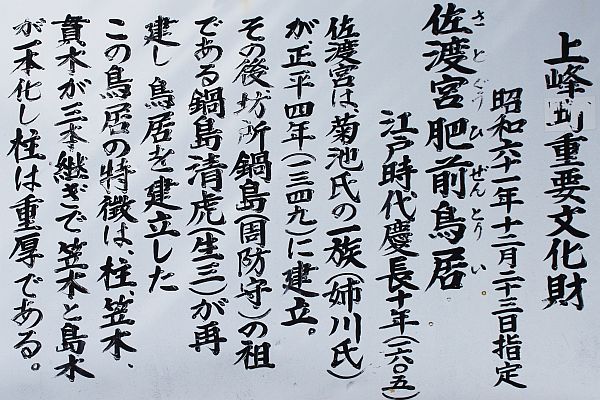 上峰町重要文化財
昭和六十一年十二月二十三日指定
さとぐうひぜんとりい
佐渡宮肥前鳥居
江戸時代慶長十年(一六〇五)
佐渡宮は、菊池氏の一族(姉川氏)
が、正平四年(一三四九)に建立。
その後坊所鍋島(周防守)の祖
である鍋島清虎(生三)が再
建し鳥居を建立した
この鳥居の特徴は、柱、笠木、
貫木が三本継ぎで笠木と島木
が一本化し柱は重厚である。